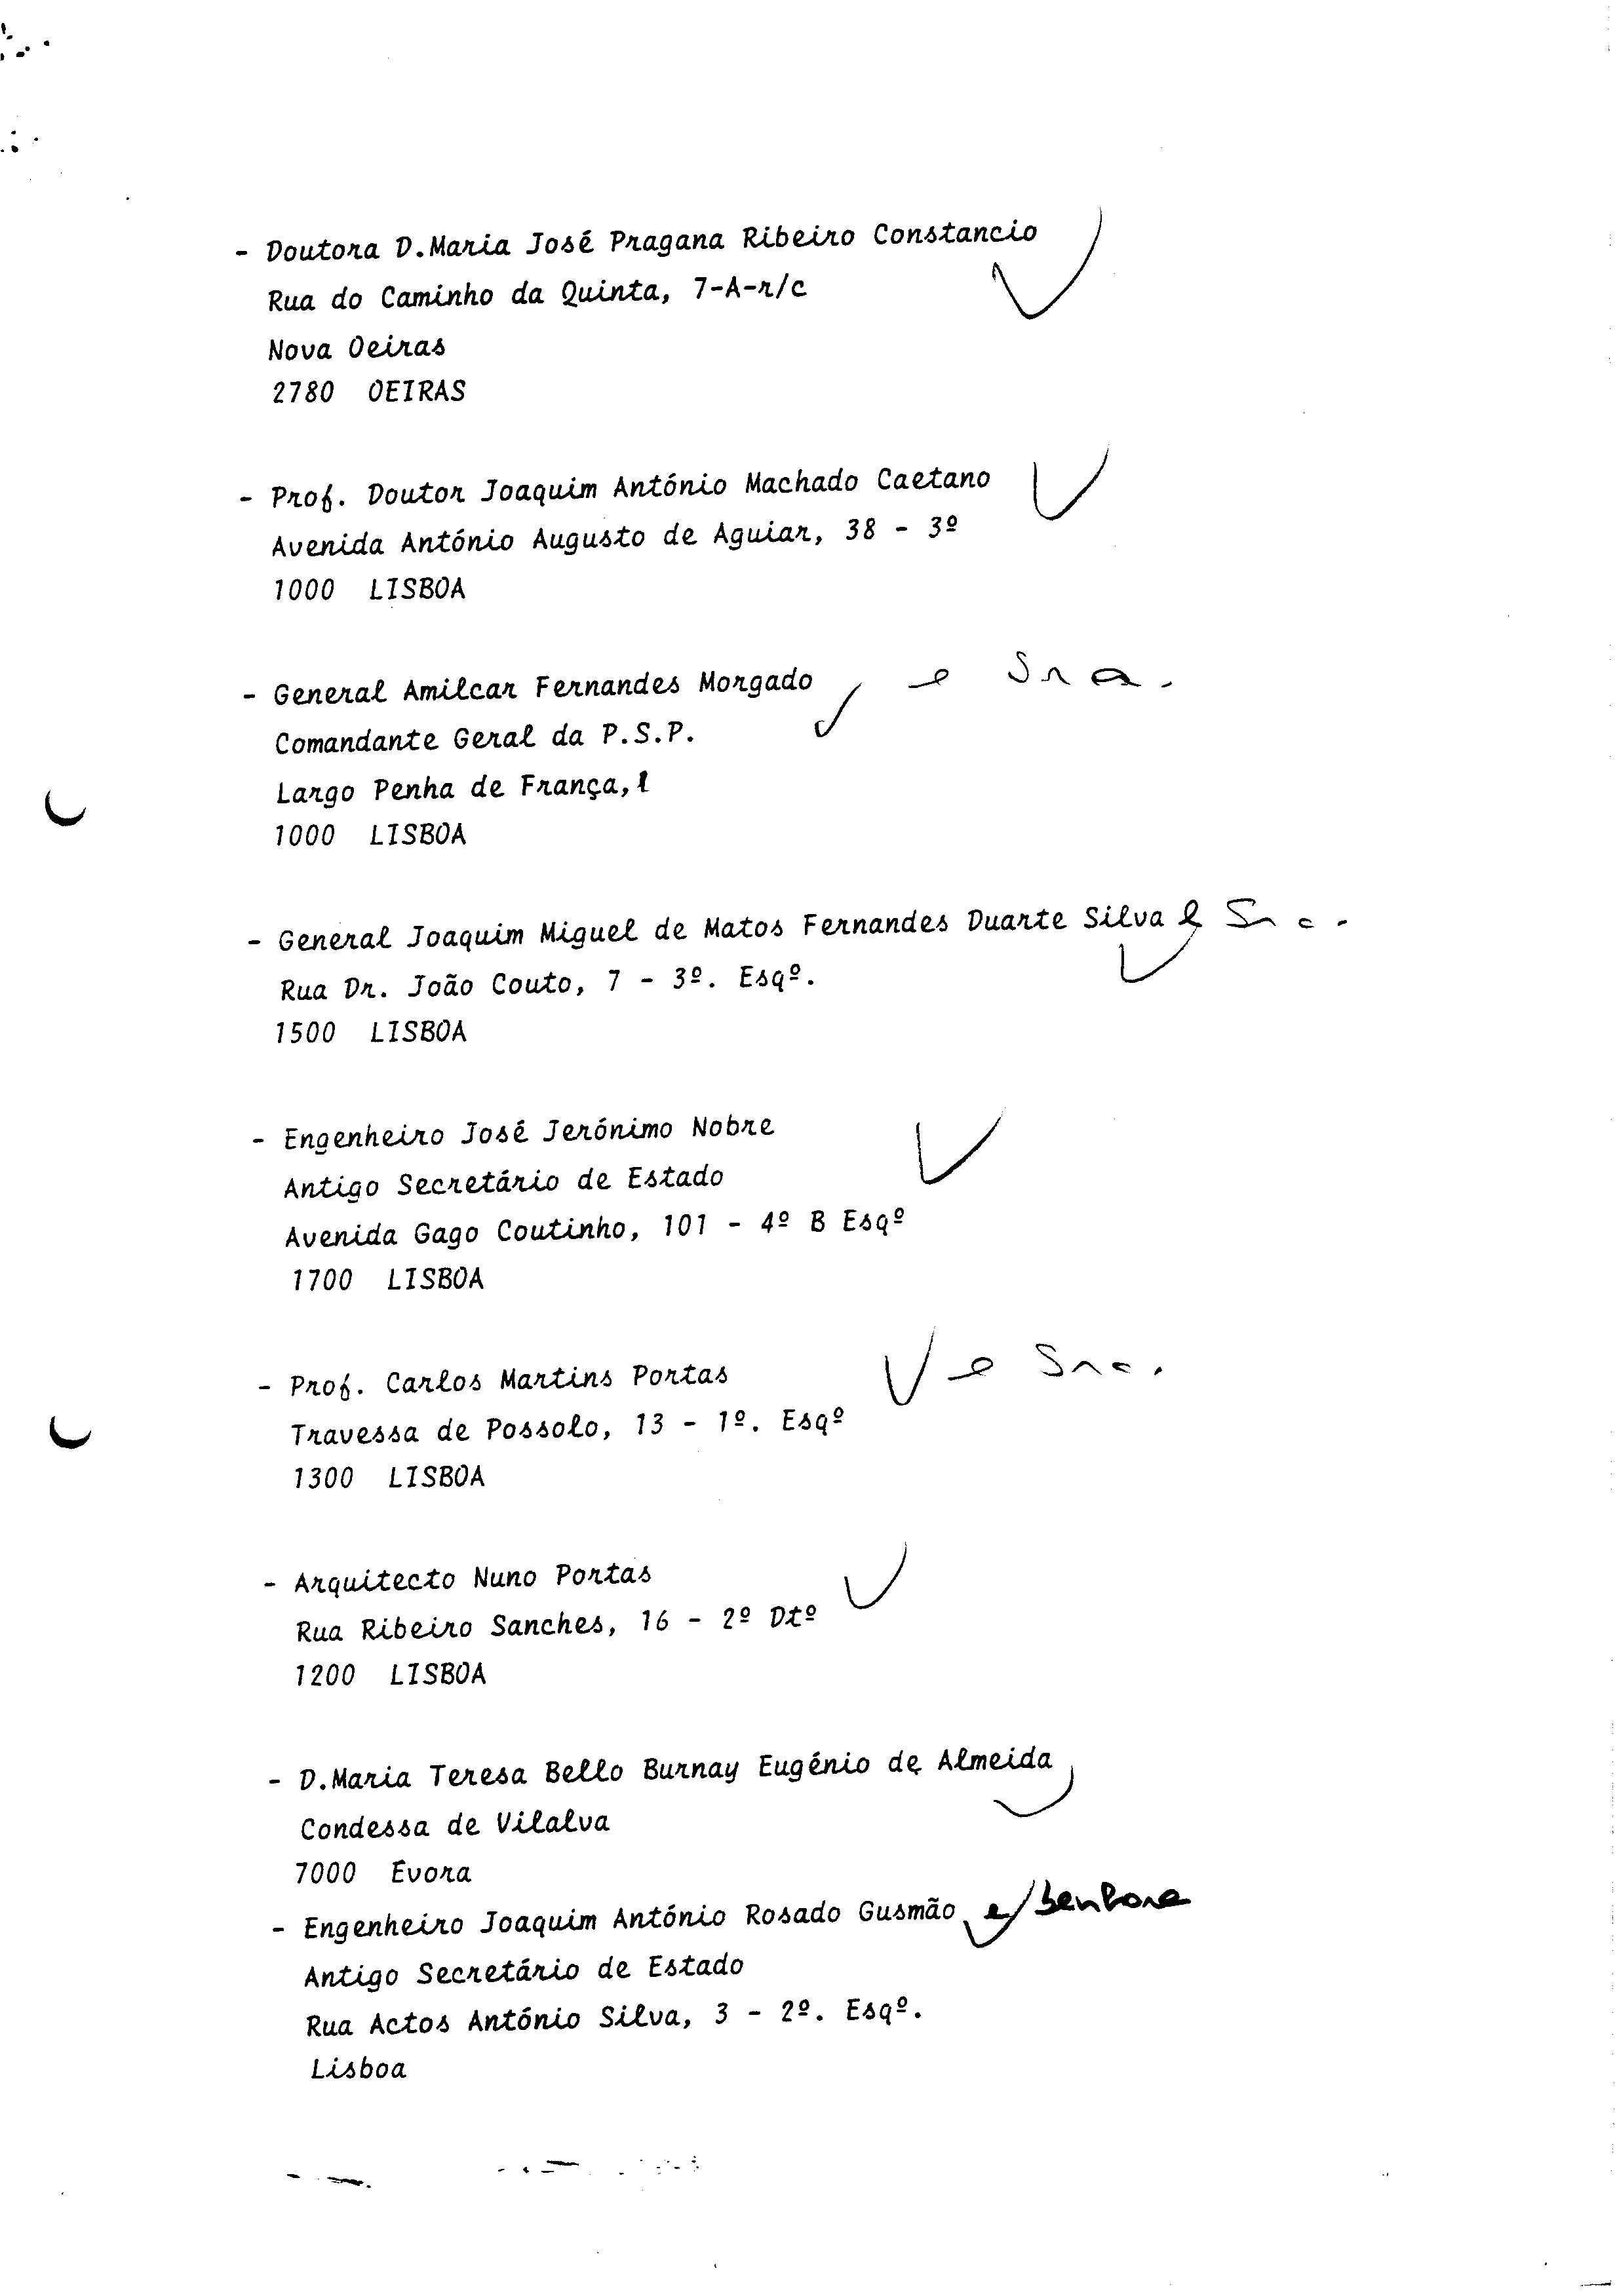 - Doutora D.Maria José Pragana Ribeiro Constancio
Rua do Caminho da Quinta, 7-A-r/c
Nova Oeiras
2780 OEIRAS
- Prof. Doutor Joaquim António Machado Caetano
Avenida António Augusto de Aguiar, 38 - 3º
1000 LISBOA
- General Amilcar Fernandes Morgado e Sra.
Comandante Geral da P.S.P.
Largo Penha de França,1
1000 LISBOA
- General Joaquim Miguel de Matos Fernandes Duarte Silva e Sra.
Rua Dr. João Couto, 7 - 3º. Esqº.
1500 LISBOA
- Engenheiro José Jerónimo Nobre
Antigo Secretário de Estado
Avenida Gago Coutinho, 101 - 4º B Esqº
1700 LISBOA
- Prof. Carlos Martins Portas e Sra.
Travessa de Possolo, 13 - 1º. Esqº
1300 LISBOA
- Arquitecto Nuno Portas
Rua Ribeiro Sanches, 16 - 2º Dtº
1200 LISBOA
- D.Maria Teresa Bello Burnay Eugénio de Almeida
Condessa de Vilalva
7000 Évora
- Engenheiro Joaquim António Rosado Gusmão e/ Senhora
Antigo Secretário de Estado
Rua Actos António Silva, 3 - 2º. Esqº.
Lisboa